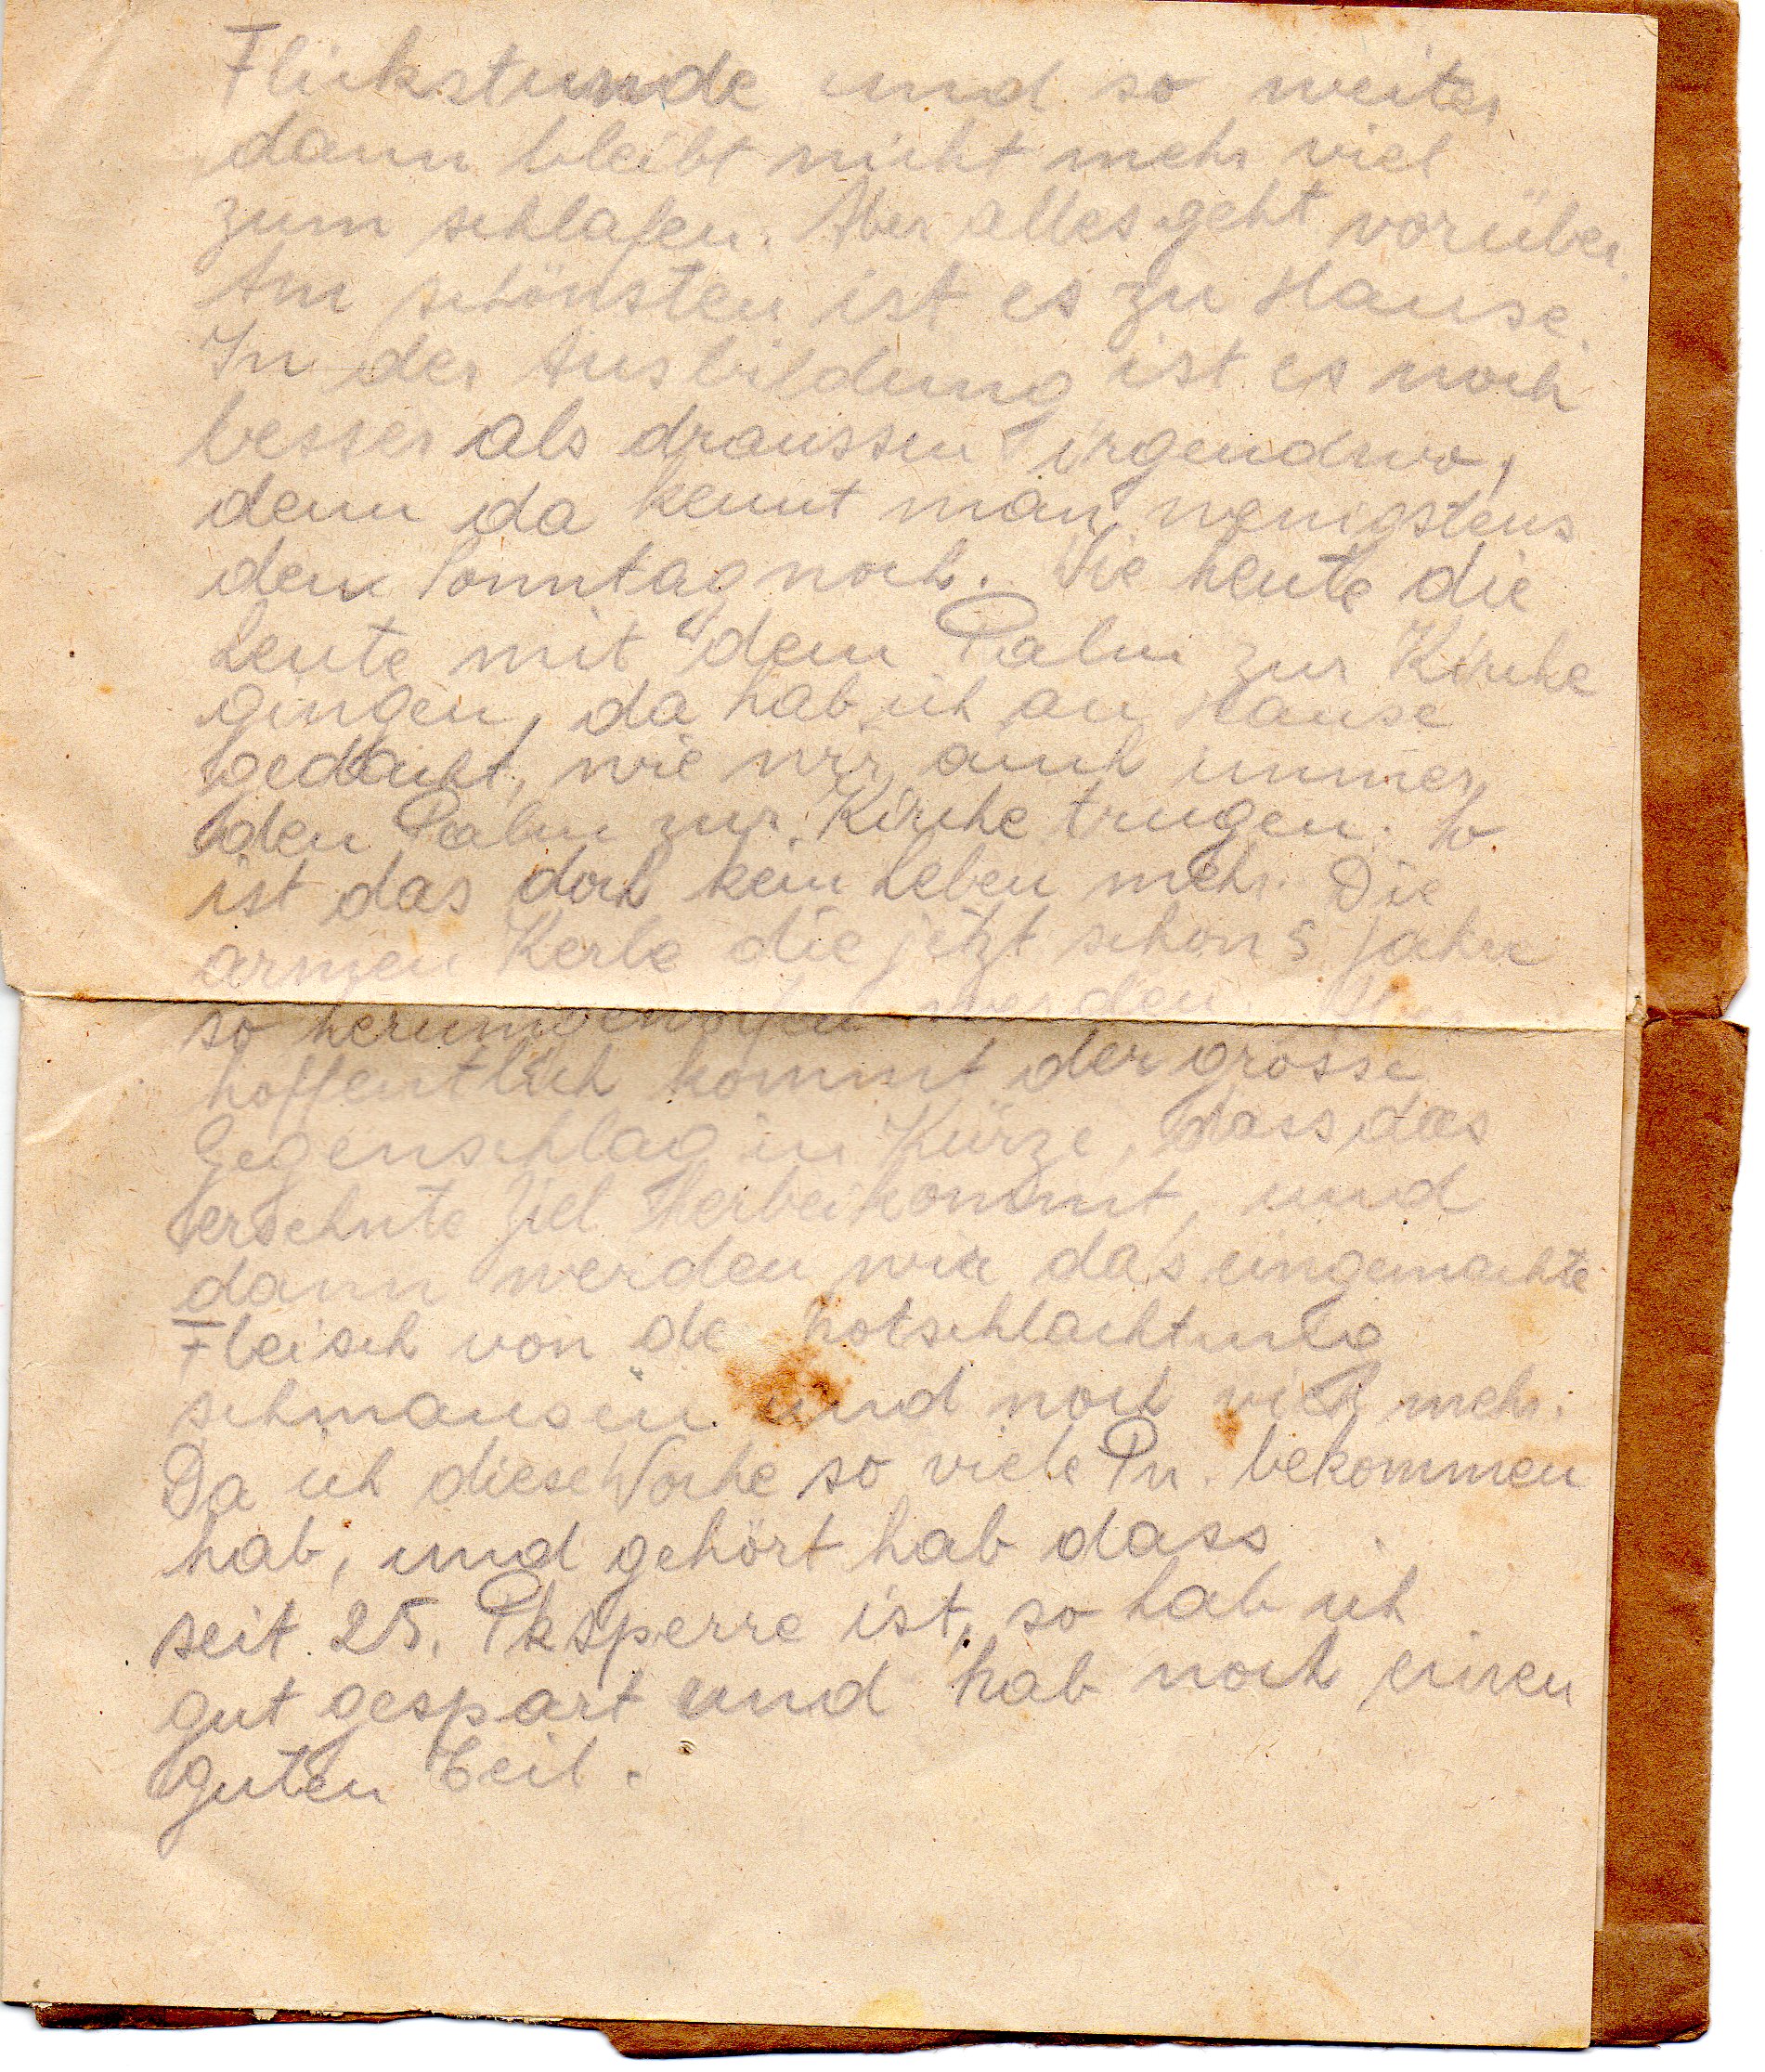 Flickstunde und so weiter
dann bleibt nicht mehr viel
zum schlafen. Aber alles geht vorüber.
Am schönsten ist es zu Hause.
In der Ausbildung ist es noch
besser als draussen irgendwo,
denn da kennt man wenigstens
den Sonntag noch. Wie heute die
Leute mit dem Palm zur Kirche
gingen, da hab ich an Hause
gedacht, wie wir auch immer
den Palm zur Kirche trugen. So
ist das doch kein Leben mehr. Die
armen Kerle die jetzt schon 5 Jahre
so herumgeworfen werden. Aber
hoffentlich kommt der grosse
Gegenschlag in Kürze, dass das
ersehnte Ziel herbeikommt, und
dann werden wir das eingemachte
Fleisch von de Notschlachtung
schmausen und noch viel mehr.
Da ich diese Woche so viele Pn. bekommen
hab, und gehört hab dass
seit 25. Pksperre ist, so hab ich
gut gespart und hab noch einen
guten Teil.